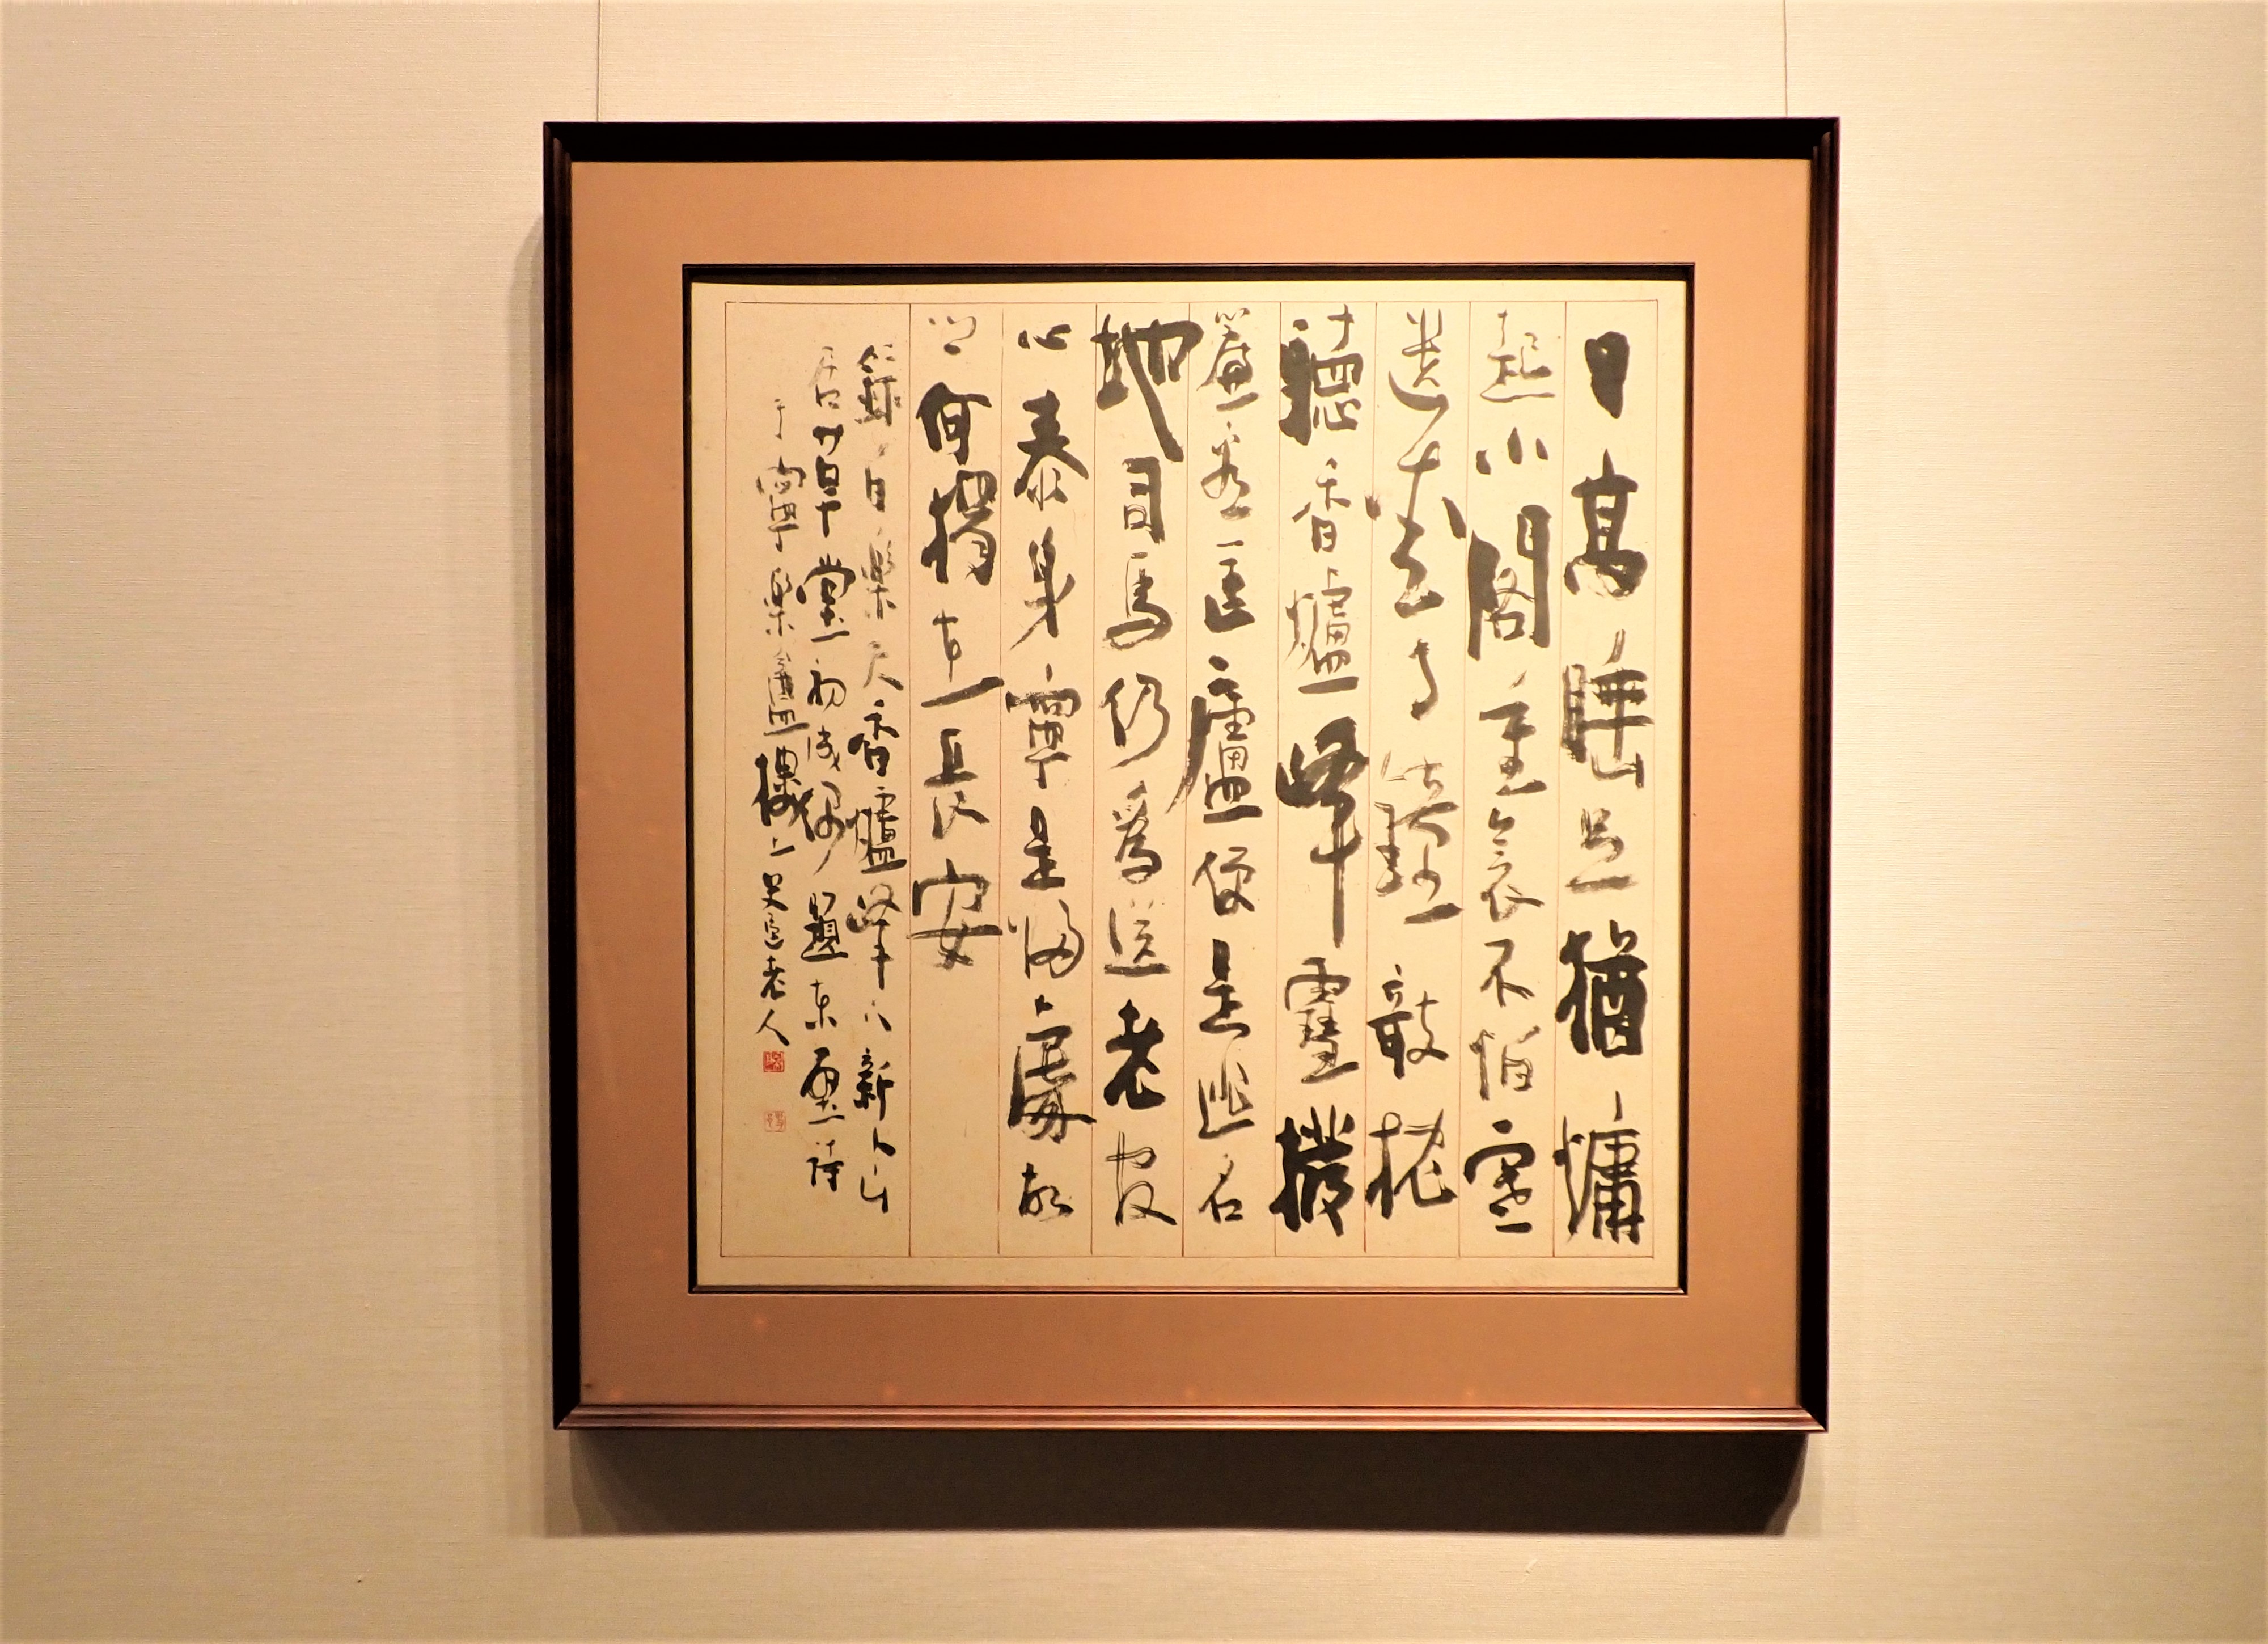 日高睡足猶慵
起小閣重衾不怕寒
遺愛寺鐘欹枕
聽香爐峰雪撥
簾看匡廬便是逃名
地司馬仍爲送老官
心泰身寧是歸處故
郷何獨在長安
錄白樂天香爐峰下新卜山
居草堂初成偶題東壁詩
于寧樂盦樓上史邑老人